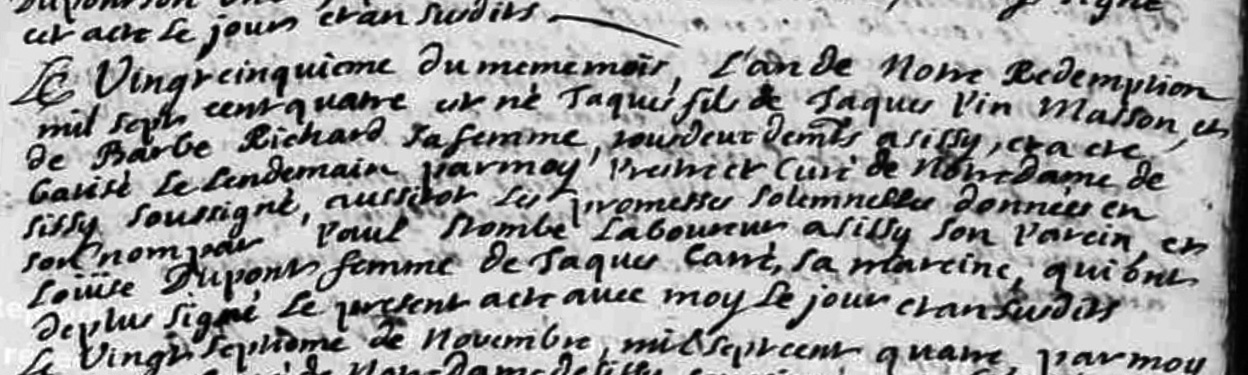 cet acte le jour et an susdits
Le Vingtcinquiéme du meme mois, l'an de Notre Redemption
mil sept cent quatre est né Jaques fils de Jaques Pin Masson, et
de Barbe Richard sa femme, tous deux demts a sissy, et a eté
batisé le lendemain par moy Pretre et Curé de Notre dame de
sissy soussigné, aussitot les promesses solemnelles données en
son nom par Paul Nombe Laboureur a sissy son Parein, et
Loüise Dupont femme de Jaques Carré, sa mareine, qui ont
de plus signé le present acte avec moy le jour et an susdits
Le Vingt Septiéme de Novembre, mil sept cent quatre, par moy
de Notre dame de sissy